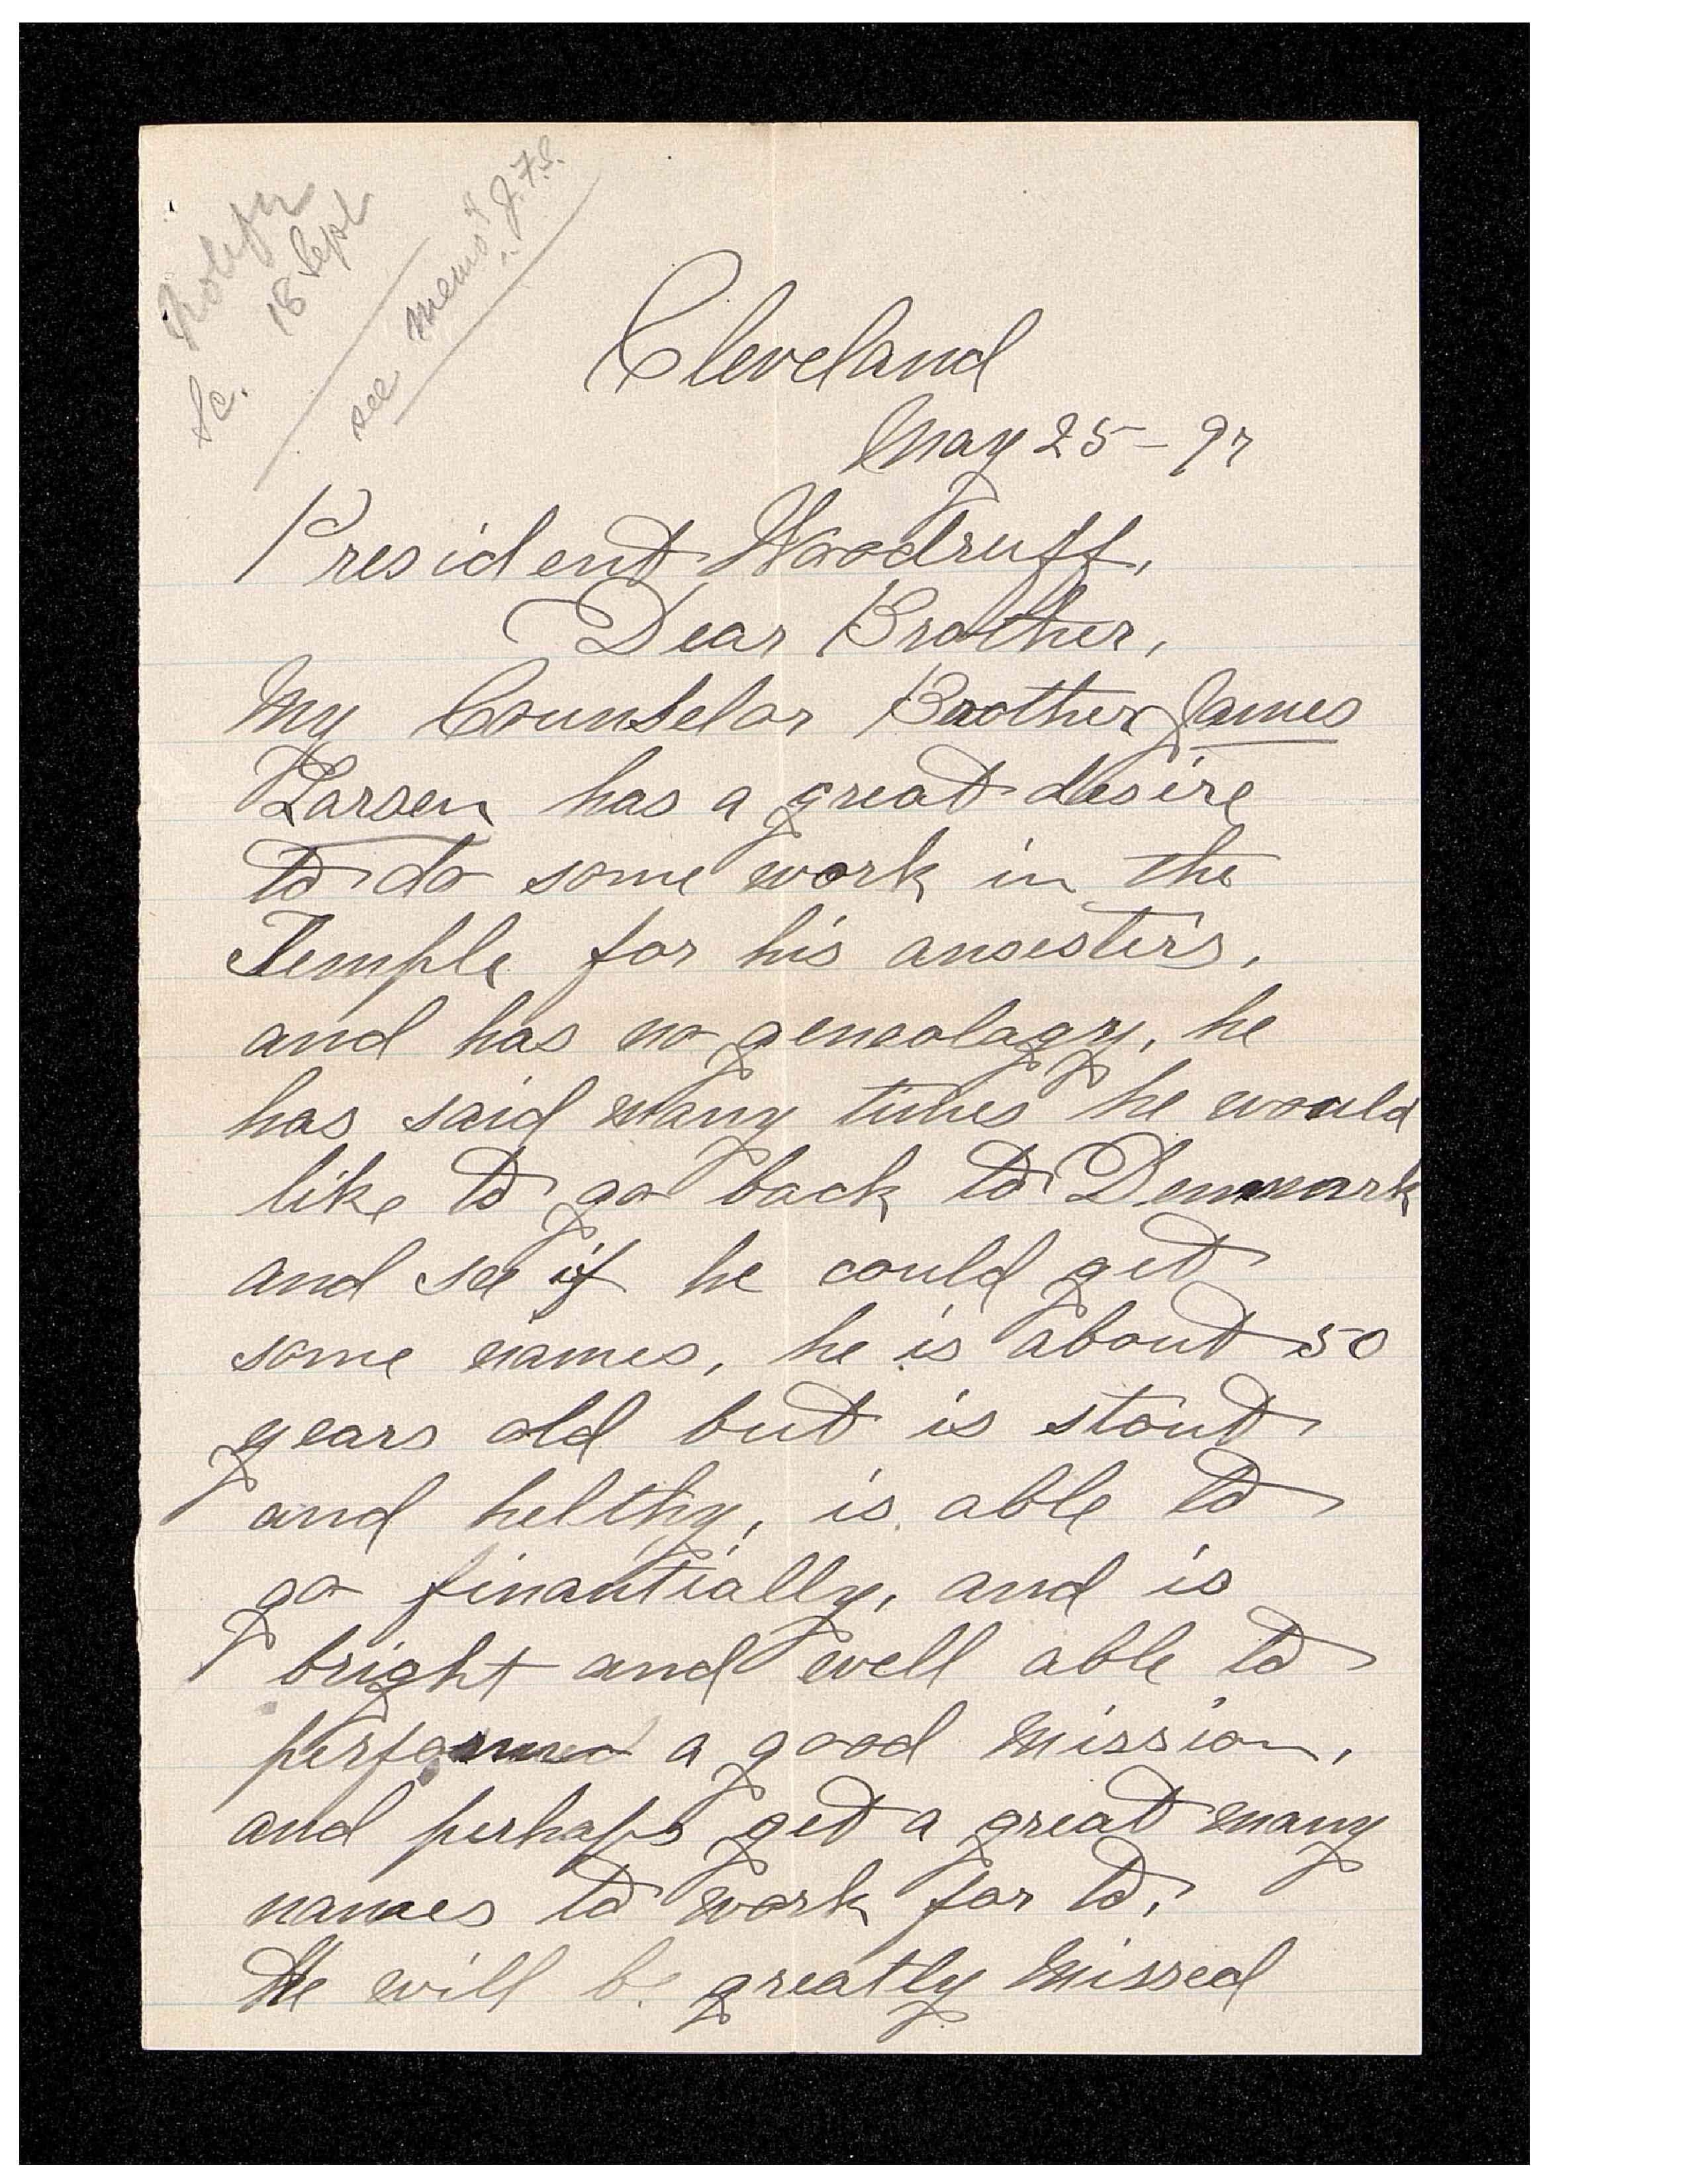 18 Sept
see memo of J.F.S.
Cleveland
May 25 - 97
President Woodruff,
Dear Brother,
My Counselor Brother James
Larsen has a great desire
to do some work in the
Temple for his ansesters,
and has no geneolagy, he
has said many times he would
like to go back to Denmark
and see if he could get
some names, he is about 50
years old but is stout
and helthy, is able to
go finantially, and is
bright and well able to
a good mission,
and perhaps get a great many
names to work for to,
He will be greatly missed